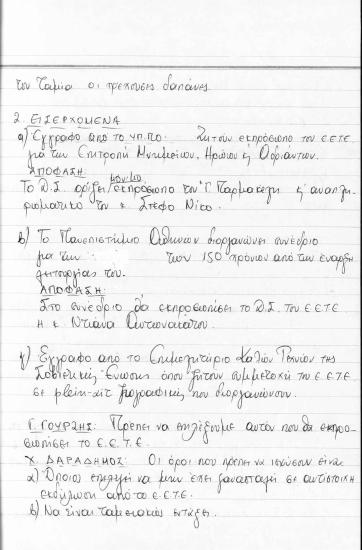 τον ταμία οι τρέχουσες δαπάνες.
2. ΕΙΣΕΡΧΟΜΕΝΑ
α) Έγγραφο από το ΥΠ.ΠΟ. Ζητούν εκπρόσωπο του Ε.Ε.Τ.Ε
για την Επιτροπή Μνημείων, Ηρώων ή Ανδριάντων.
ΑΠΟΦΑΣΗ: μόνιμο
Το Δ.Σ. ορίζει εκπρόσωπο τον Γ. Παρμακέλη & αναπλη-
ρωματικό τον κ. Στέφο Νίκο.
β) Το Πανεπιστήμιο Αθηνών διοργανώνει συνέδριο
για την των 150 χρόνων από την έναρξη
λειτουργίας του.
ΑΠΟΦΑΣΗ:
Στο συνέδριο θα εκπροσωπήσει το Δ.Σ. του Ε.Ε.Τ.Ε
η κ. Ντιάνα Αντωνακάτου.
γ) Έγγραφο από το Επιμελητήριο Καλών Τεχνών της
Σοβιετικής Ένωσης όπου ζητούν συμμετοχή του Ε.Ε.Τ.Ε.
σε plein-air ζωγραφικής που διοργανώνουν.
Γ. ΓΟΥΡΖΗΣ: Πρέπει να επιλέξουμε αυτόν που θα εκπρο-
σωπήσει το Ε.Ε.Τ.Ε.
Χ. ΔΑΡΑΔΗΜΟΣ: Οι όροι που πρέπει να ισχύσουν είναι
α) Όποιος επιλεγεί να μην έχει ξαναπάει σε αντίστοιχη
εκδήλωση από το Ε.Ε.Τ.Ε.
β) Να είναι ταμειακώς εντάξει.